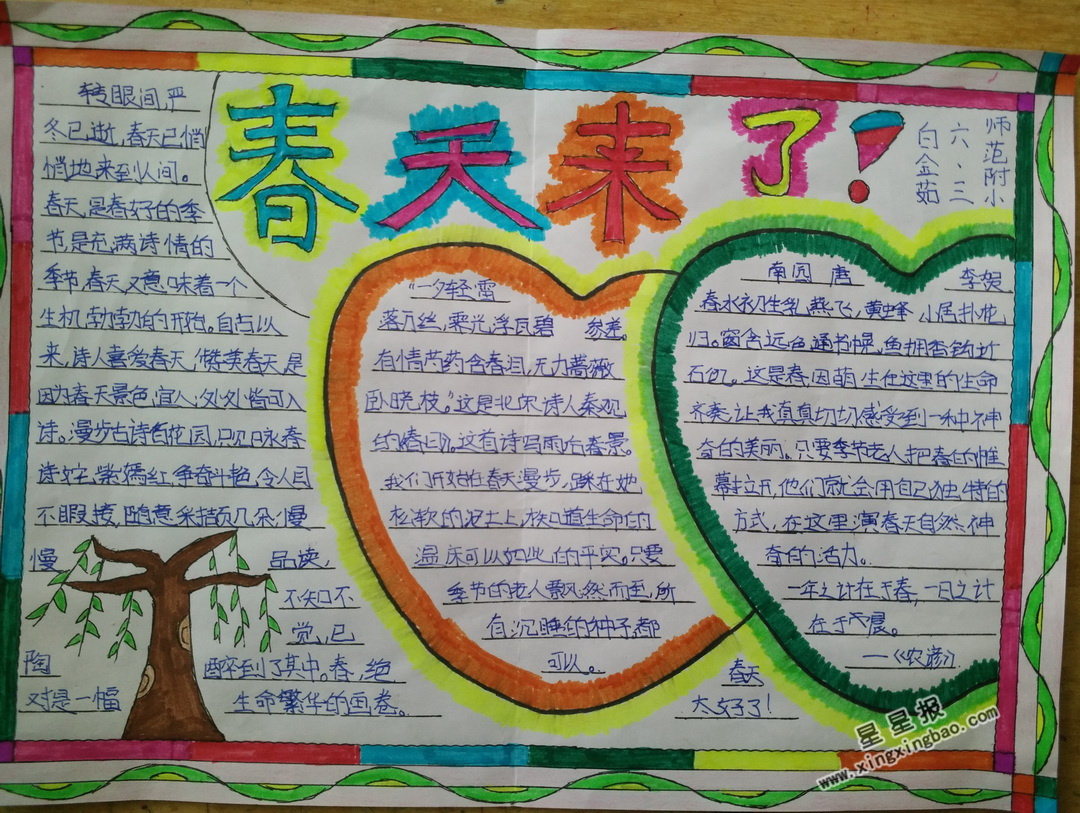 春天来了!
师范附小
六、三
白金茹
转眼间,严
冬已逝,春天已悄
悄地来到人间。
春天,是春好的季
节是充满诗情的
季节,春天又意味着一个
生机勃勃的开始。自古以
来,诗人喜爱春天,赞美春天,是
因为春天景色,宜人;处处皆可入
诗。漫步古诗的花园,只见咏春
诗姹紫嫣红,争奋斗艳,令人目
不暇接,随意采撷几朵,慢
慢 品读,
不知不
觉,已
陶 醉到了其中。春,绝
对是一幅 生命繁华的画卷。
“一夕轻雷
落万丝,霁光浮瓦碧 参差。
有情芍药含春泪,无力蔷薇
卧晓枝。”这是北宋诗人秦观
的《春日》。这首诗写雨后春景。
我们开始在春天漫步,踩在她
松软的泥土上,
温床可以如此的平实。只要
季节的老人飘然而至,所
有沉睡的种子,都
可以。
南园 唐 李贺
春水初生乳燕飞,黄蜂小尾扑花
归。窗含远色通书幌,鱼拥香钩近
石矶。这是春,因萌生在这里的生命
齐奏,让我真真切切感受到一种神
奇的美丽。只要季节老人把春的帷
幕拉开,他们就会用自己独特的
方式,在这里演春天自然神
奇的活力。
一年之计在于春,一日之计
在于晨。
—《农谚》
春天
太好了!
星星报
www.xingxingbao.com